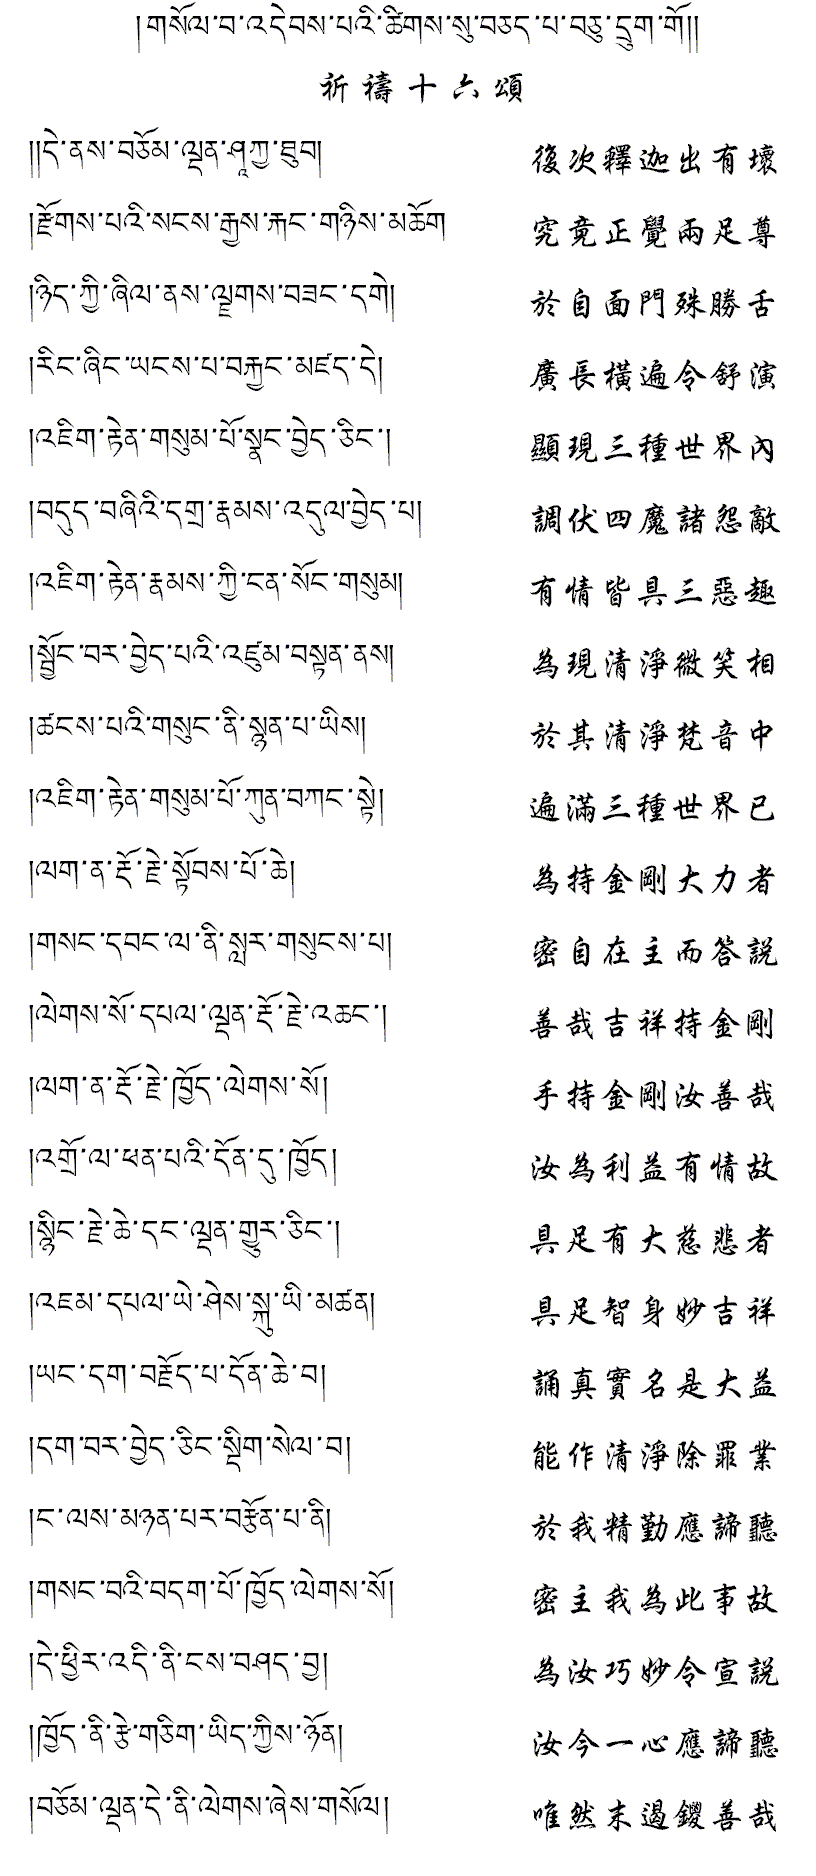 །གསོལ་བ་འདེབས་པའི་ཚིགས་སུ་བཅད་པ་བཅུ་དྲུག་གོ།།
祈禱十六頌
།།དེ་ནས་བཅོམ་ལྡན་ཤཱཀྱ་ཐུབ། 後次釋迦出有壞
།རྫོགས་པའི་སངས་རྒྱས་རྐང་གཉིས་མཆོག 究竟正覺兩足尊
།ཉིད་ཀྱི་ཞིལ་ནས་ལྗགས་བཟང་དགེ། 於自面門殊勝舌
།རིང་ཞིང་ཡངས་པ་བརྐྱང་མཛད་དེ། 廣長橫遍令舒演
།འཇིག་རྟེན་གསུམ་པོ་སྣང་བྱེད་ཅིང་། 顯現三種世界內
།བདུད་བཞིའི་དགྲ་རྣམས་འདུལ་བྱེད་པ། 調伏四魔諸怨敵
།འཇིག་རྟེན་རྣམས་ཀྱི་ངན་སོང་གསུམ། 有情皆具三惡趣
།སྦྱོང་བར་བྱེད་པའི་འཛུམ་བསྟན་ནས། 為現清淨微笑相
།ཚངས་པའི་གསུང་ནི་སྙན་པ་ཡིས། 於其清淨梵音中
།འཇིག་རྟེན་གསུམ་པོ་ཀུན་བཀང་སྟེ། 遍滿三種世界已
།ལག་ན་རྡོ་རྗེ་སྟོབས་པོ་ཆེ། 為持金剛大力者
།གསང་དབང་ལ་ནི་སླར་གསུངས་པ། 密自在主而答說
།ལེགས་སོ་དཔལ་ལྡན་རྡོ་རྗེ་འཆང་། 善哉吉祥持金剛
།ལག་ན་རྡོ་རྗེ་ཁྱོད་ལེགས་སོ། 手持金剛汝善哉
།འགྲོ་ལ་ཕན་པའི་དོན་དུ་ཁྱོད། 汝為利益有情故
།སྙིང་རྗེ་ཆེ་དང་ལྡན་གྱུར་ཅིང་། 具足有大慈悲者
།འཇམ་དཔལ་ཡེ་ཤེས་སྐུ་ཡི་མཚན། 具足智身妙吉祥
།ཡང་དག་བརྗོད་པ་དོན་ཆེ་བ། 誦真實名是大益
།དག་བར་བྱེད་ཅིང་སྡིག་སེལ་བ། 能作清淨除罪業
།ང་ལས་མཉན་པར་བརྩོན་པ་ནི། 於我精勤應諦聽
།གསང་བའི་བདག་པོ་ཁྱོད་ལེགས་སོ། 密主我為此事故
།དེ་ཕྱིར་འདི་ནི་ངས་བཤད་བྱ། 為汝巧妙令宣說
།ཁྱོད་ནི་རྩེ་གཅིག་ཡིད་ཀྱིས་ཉོན། 汝今一心應諦聽
།བཅོམ་ལྡན་དེ་ནི་ལེགས་ཞེས་གསོལ། 唯然末遏鑁善哉